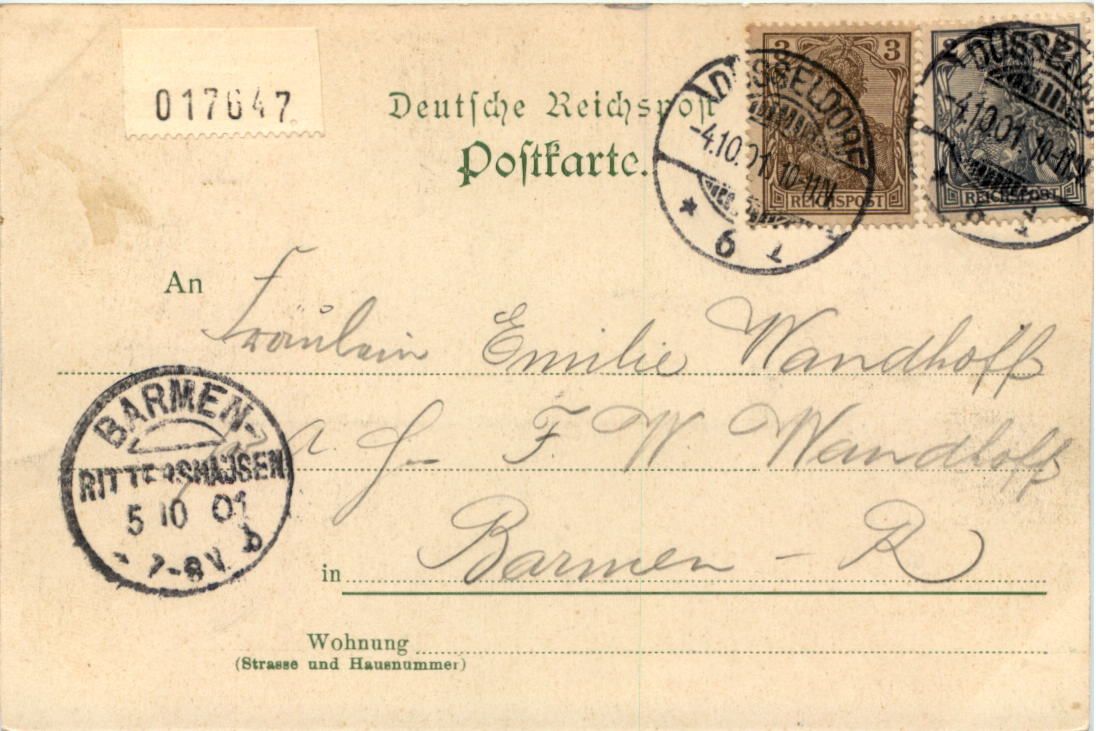 017647
Deutsche Reichspost
Postkarte.
3 3
REICHSPOST
REICHSPOST
DÜSSELDORF
-4.10.01.10-11V.
* 6 1
DÜSSELDORF
4.10.01.10-11V
* 1
An Fräulein Emilie Wandhoff
F. W Wandhoff
in Barmen - R
BARMEN-
RITTERSHAUSEN
5 10 01
7-8V.
Wohnung
(Strasse und Hausnummer)